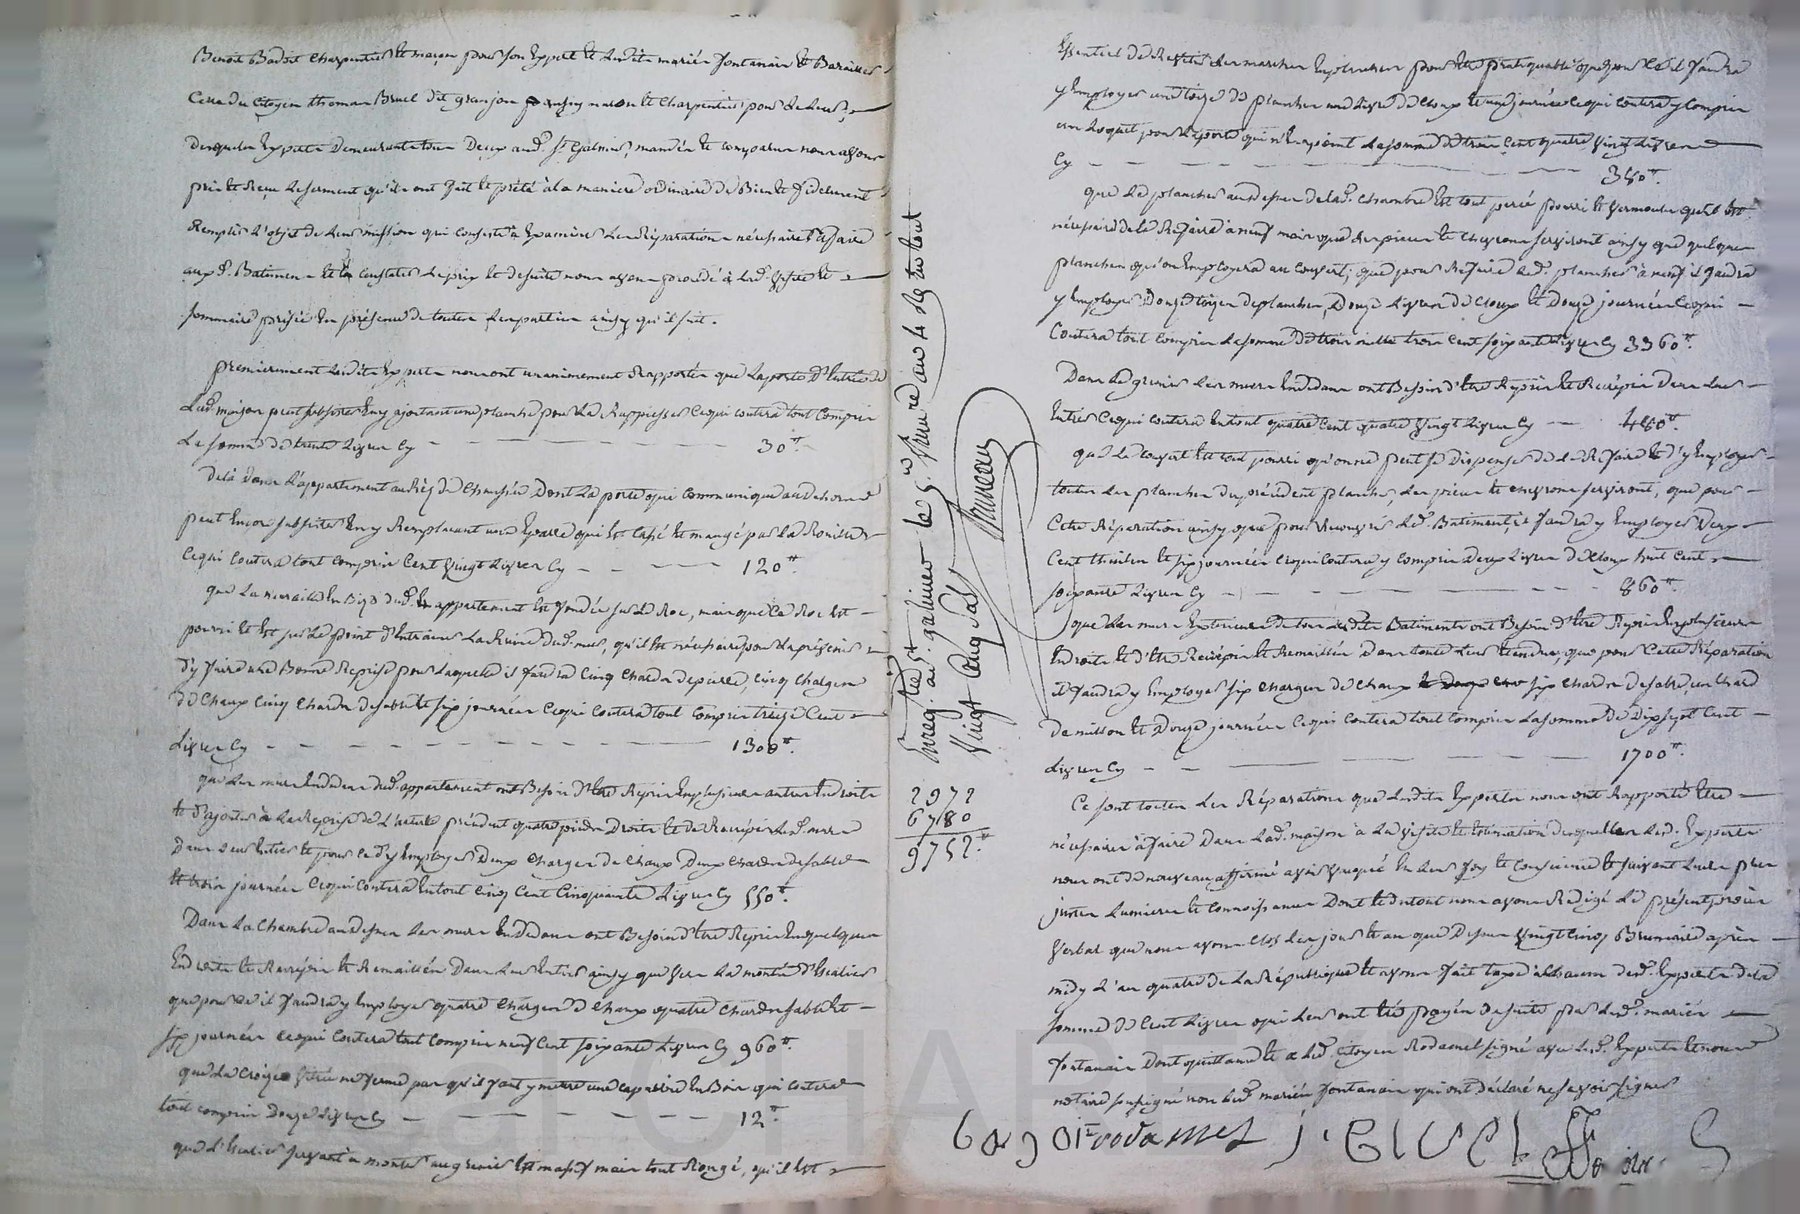 Benoit Badoit charpentier et maçon pour son Expert et lesdits mariés fontanair et Barailler
Celle du Citoyen thomas Bruel dit granjon aussy maçon et charpentier pour le leur,
desquels Experts demeurants tous deux aud. St Galmier, mandés et comparus nous avons
pris et Reçu le serment qu'ils ont fait et prêté à la maniere ordinaire de Bien et fidelement
Remplir l'objet de leur mission qui consiste à Examiner les Réparations nécéssaires à faire
auxd. Batimens et en constater le prix et de suite nous avons procédé à lad. visite et
sommaire prisée En présence de toutes les parties ainsy qu'il suit.
premierement lesdits Experts nous ont unanimement Rapporté que la porte d'Entrée de
lad. maison peut subsister En y ajoutant une planche pour la Rappiesser ce qui coutera tout compris
la somme de trente Livres Cy 30tt.
delà dans l'appartement au Réz de chaussée dont la porte qui communique au dehors
peut Encor subsister En y Remplacant une Eparre qui Est cassé et mangé par la Rouille
ce qui coutera tout compris Cent vingt Livres Cy 120tt.
que la muraille En Bize dud. appartement Est fondée sur le Roc, mais que ce Roc Est
pourri et Est sur le point d'Entrainer la Ruine dud. mur, qu'il Est nécéssaire pour la prévenir
d'y faire une Bonne Reprise pour laquelle il faudra cinq chards de pierre, cinq charges
de chaux cinq chards de sable et six journées ce qui coutera tout compris treize Cent
Livres Cy 1300tt.
que les murs En dedans dud. appartement ont Besoin d'Etre Repris En plusieurs autres Endroits
et d'ajouter à la Reprise de l'article précédent quatre pieds Droits et de Recrépir led. mur
dans leur Entier et pour ce d'y Employer Deux charges de chaux Deux chards de sable
et trois journées ce qui coutera En tout cinq Cent Cinquante Livres Cy 550tt.
Dans la Chambre au dessus les murs En dedans ont Besoin d'Etre Repris En quelques
Endroits et Recrépis et Remaillés dans leur Entier ainsy que vers la montée d'Escalier
que pour ce il faudra y Employer quatre charges de chaux quatre chards sable et
six journées ce qui coutera tout compris neuf Cent soixante Livres Cy 960tt.
que la croizée vitrée ne ferme pas qu'il faut y mettre une Espagnolette En Bois qui coutera
tout compris Douze Livres Cy 12tt.
que l'Escalier servant à monter au grenier Est massif mais tout Rongé, qu'il Est
Enreg. à St. galmier le 5 frimaire an 4 Reçu tout
Vingt Cinq Sols
2972
6780
9752tt.
Essentiel de Revêtir les marches En planches pour Etre pratiquable que pour ce il faudra
y Employer une toize de planches une Livre de cloux et une journée ce qui coutera y compris
un Loquet pour la porte qui n'En a point la somme de trois cent quatre vingt Livres
Cy 380tt.
que le plancher au dessus de lad. chambre Est tout percé pourri et vermoulu qu'il Est
nécéssaire de le Refaire à neuf mais que les pieces et chevrons serviront ainsy que quelques
planches qu'on Employera au couvert, que pour Refaire led. plancher à neuf il faudra
y Employer Douze toizes de planches, Douze Livres de cloux et Douze journées ce qui
Coutera tout compris la somme de trois mille trois Cent soixante Livres Cy 3360tt.
Dans le grenier les murs En dedans ont Besoin d'Etre Repris et Recrépis dans leur
Entier ce qui coutera En tout quatre Cent quatre vingt Livres Cy 480tt.
que le couvert Est tout pourri qu'on ne peut se dispenser de le Refaire et d'y Employer
toutes les planches du précédent plancher, les pieces et chevrons serviront, que pour
Cette Réparation ainsy que pour Recouvrir led. Batiment il faudra y Employer Deux
Cent thuilles et six journées ce qui coutera y compris Deux Livres de cloux huit Cent
soixante Livres Cy 860tt.
que les murs Exterieurs de tous lesdits Batiments ont Besoin d'Etre Repris En plusieurs
Endroits et d'Etre Recrépis et Remaillés dans toute leur Etendue, que pour Cette Réparation
il faudra y Employer six charges de chaux six chards de sable, un chard
de millon et Douze journées ce qui coutera tout compris la somme de Dix sept Cent
Livres Cy 1700tt.
Ce sont toutes les Réparations que lesdits Experts nous ont Rapporté Etre
nécéssaires à faire dans lad. maison à la visite et Estimation desquelles lesd. Experts
nous ont de nouveau affirmé avoir vaqué En leur foy et Conscience et suivant leurs plus
justes Lumieres et connoissances Dont et du tout nous avons Rédigé le présent procès
verbal que nous avons clos les jour et an que Dessus vingt cinq Brumaire après
midy l'an quatre de la République et avons fait taxe à chacun desd. Experts de la
somme de Cent Livres qui leur ont Eté payés de suite par lesd. mariés
fontanair Dont quittance et a led. Citoyen Rodamel signé avec lesd. Experts et nous
notaire soussigné non lesd. mariés fontanair qui ont déclaré ne savoir signer
rodamel